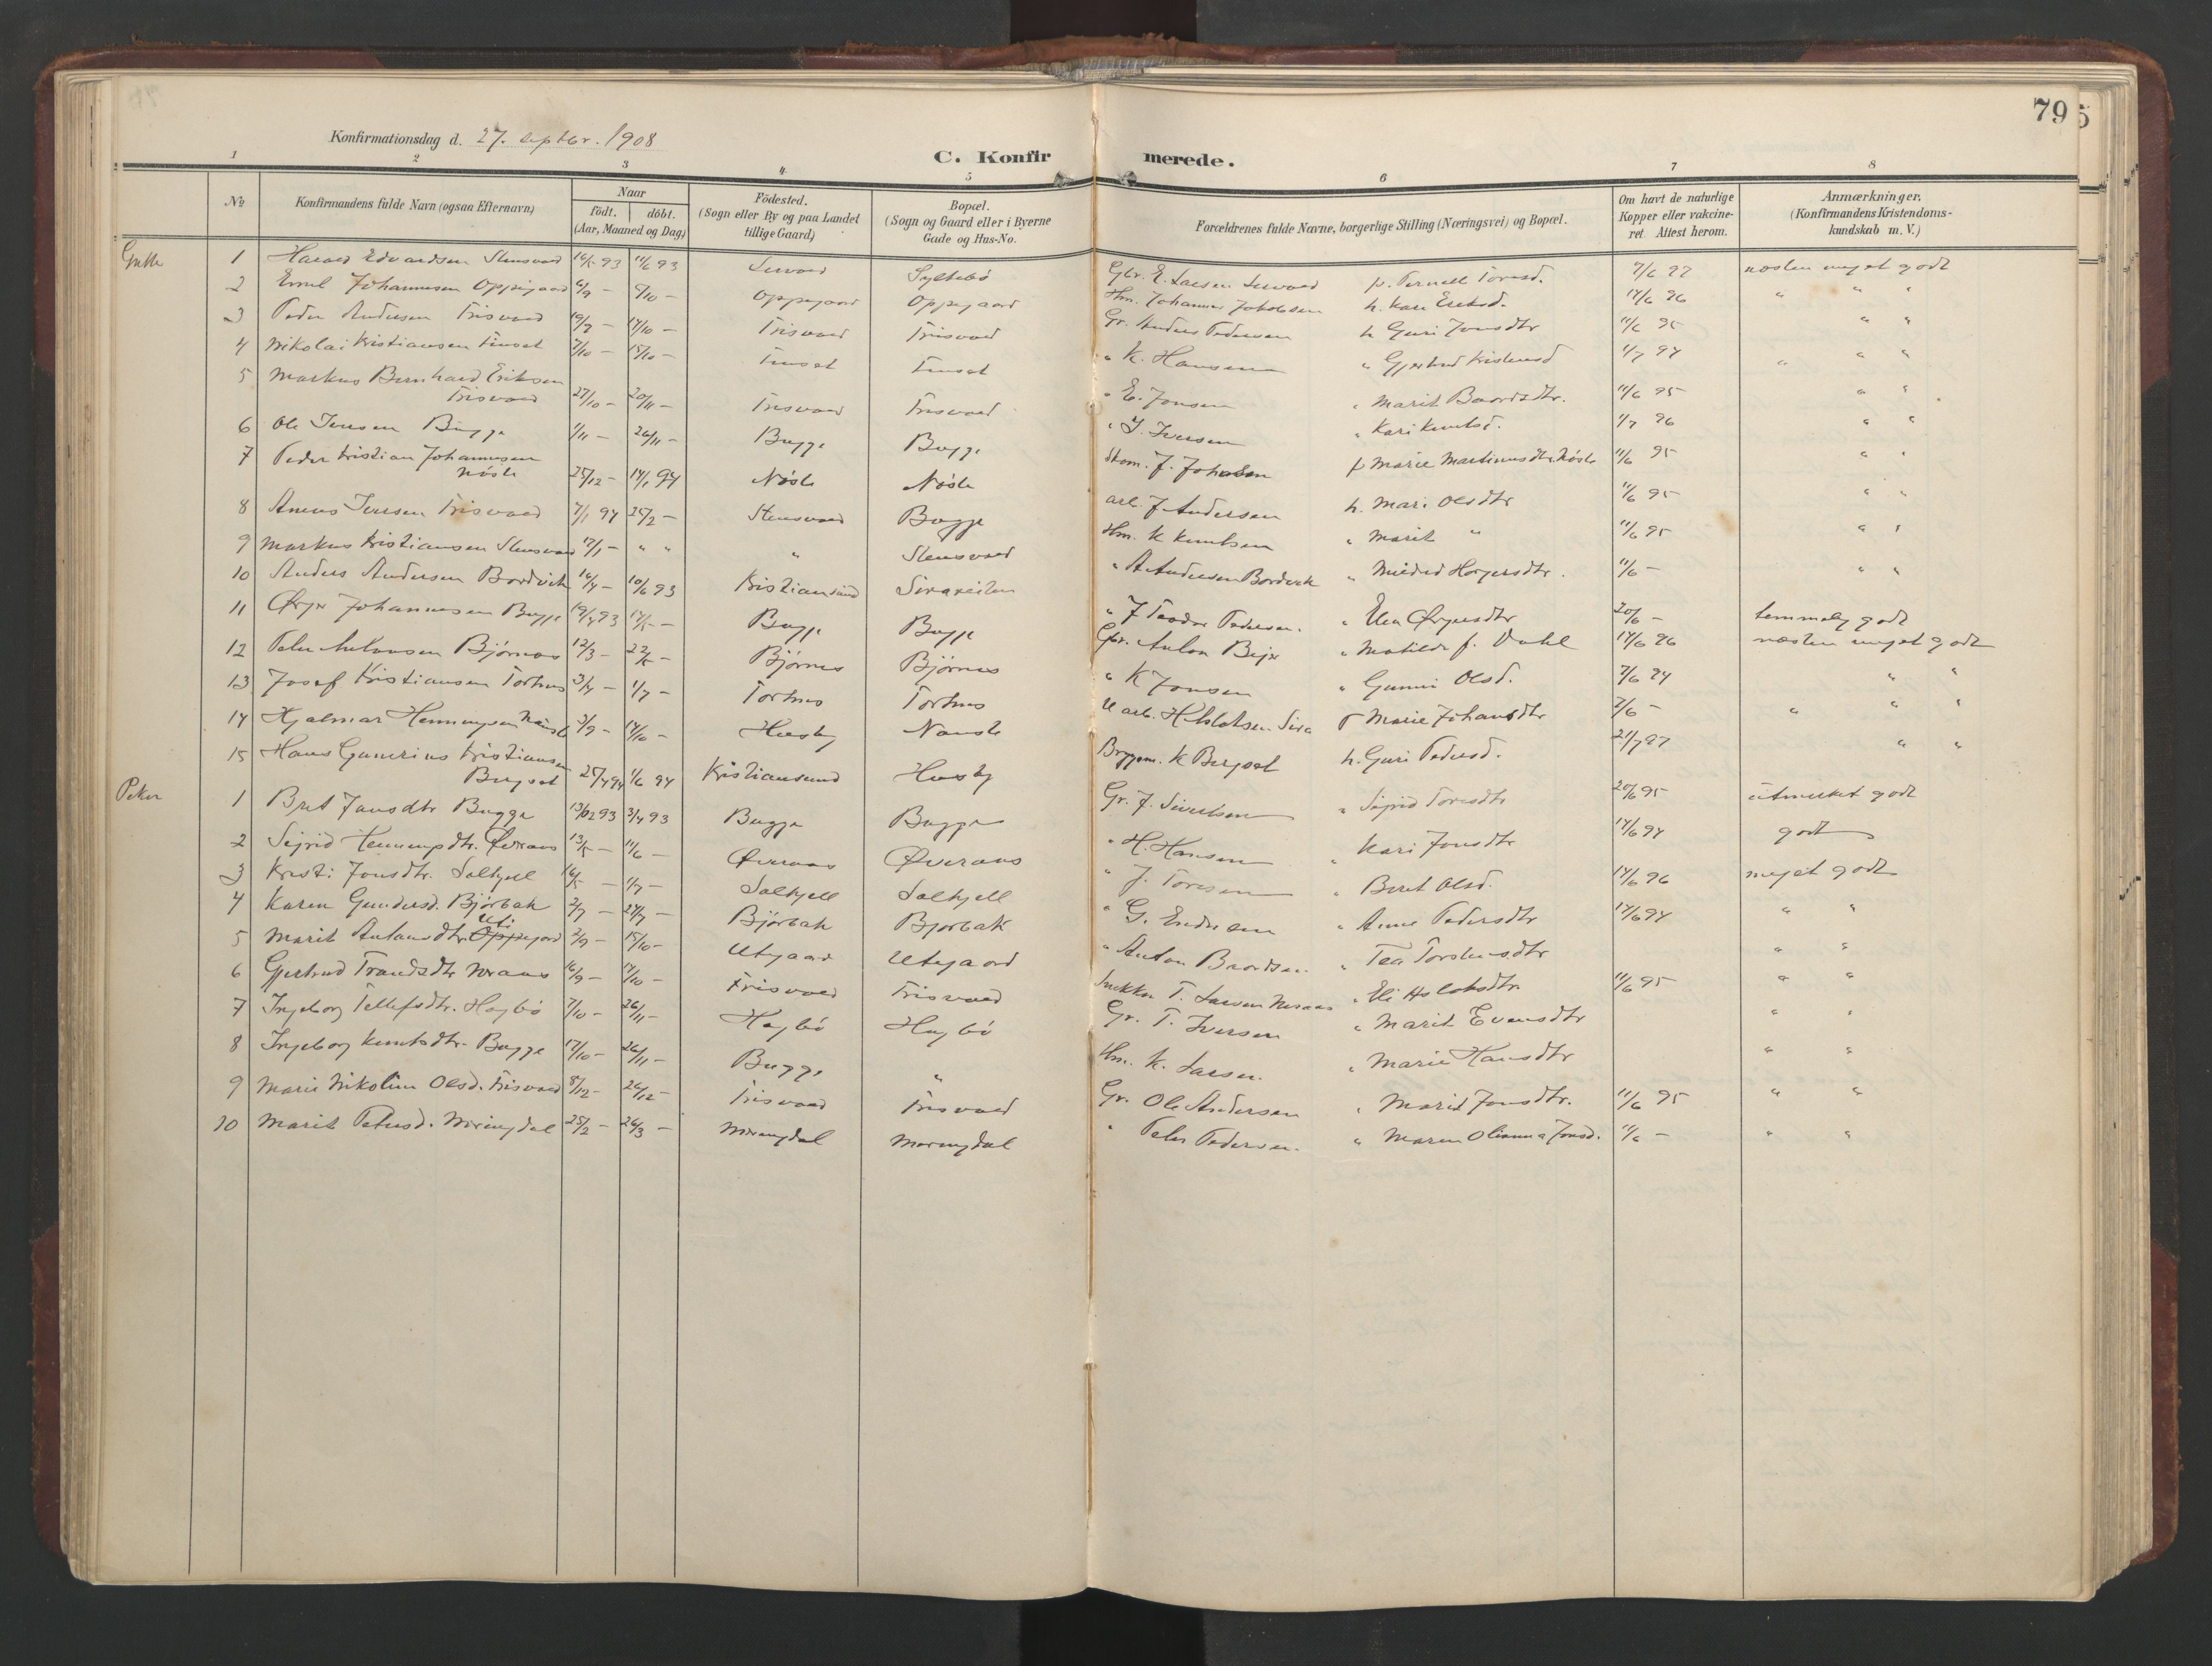 79
5
Konfirmationsdag d. 27. septbr. 1908
C. Konfirmerede.
1 2 3 4 5 6 7 8
№
Konfirmandens fulde Navn (ogsaa Efternavn)
Naar
födt. döbt.
(Aar, Maaned og Dag)
Födested.
(Sogn eller By og paa Landet
tillige Gaard)
Bopæl.
(Sogn og Gaard eller i Byerne
Gade og Hus-No.
Forældrenes fulde Navne, borgerlige Stilling (Næringsvei) og Bopæl.
Om havt de naturlige
Kopper eller vakcine-
ret. Attest herom.
Anmærkninger.
(Konfirmandens Kristendoms-
kundskab m. V.)
Gutter
1 Harald Edvardsen Stensvaad 16/5 93 11/6 93 Syltebö Gbr. E. Larsen p. Pernell Toresd. 7/6 97 næsten meget godt
2 Emil Johannesen Oppegaard 6/9 – 8/10 – Oppegaard Oppegaard Hm. Johannes Jakobsen h. Kari Eriksd. 14/6 96 " " "
3 Peder Andersen Trisvaad 19/9 – 14/10 – Trisvaad Trisvaad Gr. Anders Pedersen h Guri Jonsdtr 11/6 95 " "
4 Nikolai Kristiansen Tinset 7/10 – 15/10 – Tinset Tinset " K. Hansen " Gjertrud Kristensd 1/7 97 " " "
5 Markus Bernhard Eriksen
Trisvaad 27/10 – 20/11 – Trisvaad Trisvaad " E. Jonsen " Marit Baardsdtr. 11/6 95 " "
6 Ole Iversen Bugge 1/11 – 26/11 – Bugge Bugge " I. Iversen " Kari Knutsd. 1/7 96 " "
7 Peder Kristian Johannesen
Nösle 25/12 – 14/1 94 Nösle Nösle Skom. J. Johansen p Marie Martinusdtr. Nösle 11/6 95 " "
8 Aneus Iversen Trisvaad 7/1 94 25/2 – Stensvaad Bugge arb. J Andersen h. Mari Olsdtr 11/6 95 " "
9 Markus Kristiansen Stensvaad 17/1 – " " " Stensvaad Hm. K Knutsen " Marit " 11/6 95 " "
10 Anders Andersen Bordvik 16/4 – 10/6 93 Kristiansund " A Andersen Bordvik " Mildrid Holgersdtr. 11/6 – " "
11 Johannesen Bugge 19/4 93 14/5 – Bugge Bugge " J Teodor Pedersen. " Elen 20/6 – temmelig godt
12 Peter Antonsen Björnes 12/3 – 22/5 – Björnes Björnes Gbr. Anton " Matilde f. Dahl 14/6 96 næsten meget godt
13 Josef Kristiansen Torhus 3/4 – 1/7 – Torhus Torhus " K Jonsen " Gunni Olsd. 7/6 94 " "
14 Hjalmar Henningsen 3/9 – 14/10 – Husby Marie Johansdtr 2/6 – " " "
15 Hans Gunerius Kristiansen
Bergset 25/4 94 1/6 94 Kristiansund Husby Byggm. K Bergset h. Guri Pedersd. 21/7 97 " "
Piker
1 Brit Jonsdtr Bugge 13/02 93 3/4 93 Bugge Bugge Gr. J. Sivertsen " Sigrid Toresdtr 20/6 95 utmerket godt
2 Sigrid Henningsdtr. Överaas 13/5 – 11/6 – Överaas Överaas " H. Hansen " Kari Jonsdtr 14/6 94 godt
3 Kristi Jonsdtr. Solhjell 16/5 – 1/7 – Solhjell Solhjell " J. Toresen " Berit Olsd. 14/6 96 meget godt
4 Karen Gundersd. Björbak 2/7 – 24/7 – Björbak Björbak " G. Endresen " Anne Pedersdtr 14/6 94 " "
5 Marit Antonsdtr. Uti 2/9 – 15/10 – Utigaard Utigaard " Anton Baardsen. " Tea Torstensdtr " "
6 Gjertrud Trondsdtr Noraas 16/9 – 14/10 – Trisvaad Trisvaad Snekker T. Larsen Noraas " Eli 11/6 95 " "
7 Ingeborg Tellefsdtr. Hagbö 7/10 – 26/11 – Hagbö Hagbö Gr. T. Iversen " Marit Evensdtr " "
8 Ingeborg Knutsdtr. Bugge 17/10 – 26/11 – Bugge " Hm. K. Larsen. " Marie Hansdtr " "
9 Marie Nikoline Olsd. Trisvaad 8/12 – 26/12 – Trisvaad Trisvaad Gr. Ole Andersen " Marit Jonsdtr. 11/6 95 " "
10 Marit Petersd. Meringdal 25/2 – 26/3 – Meringdal Meringdal " Peter Pedersen. " Maren Olianna Jonsd. 11/6 – " "